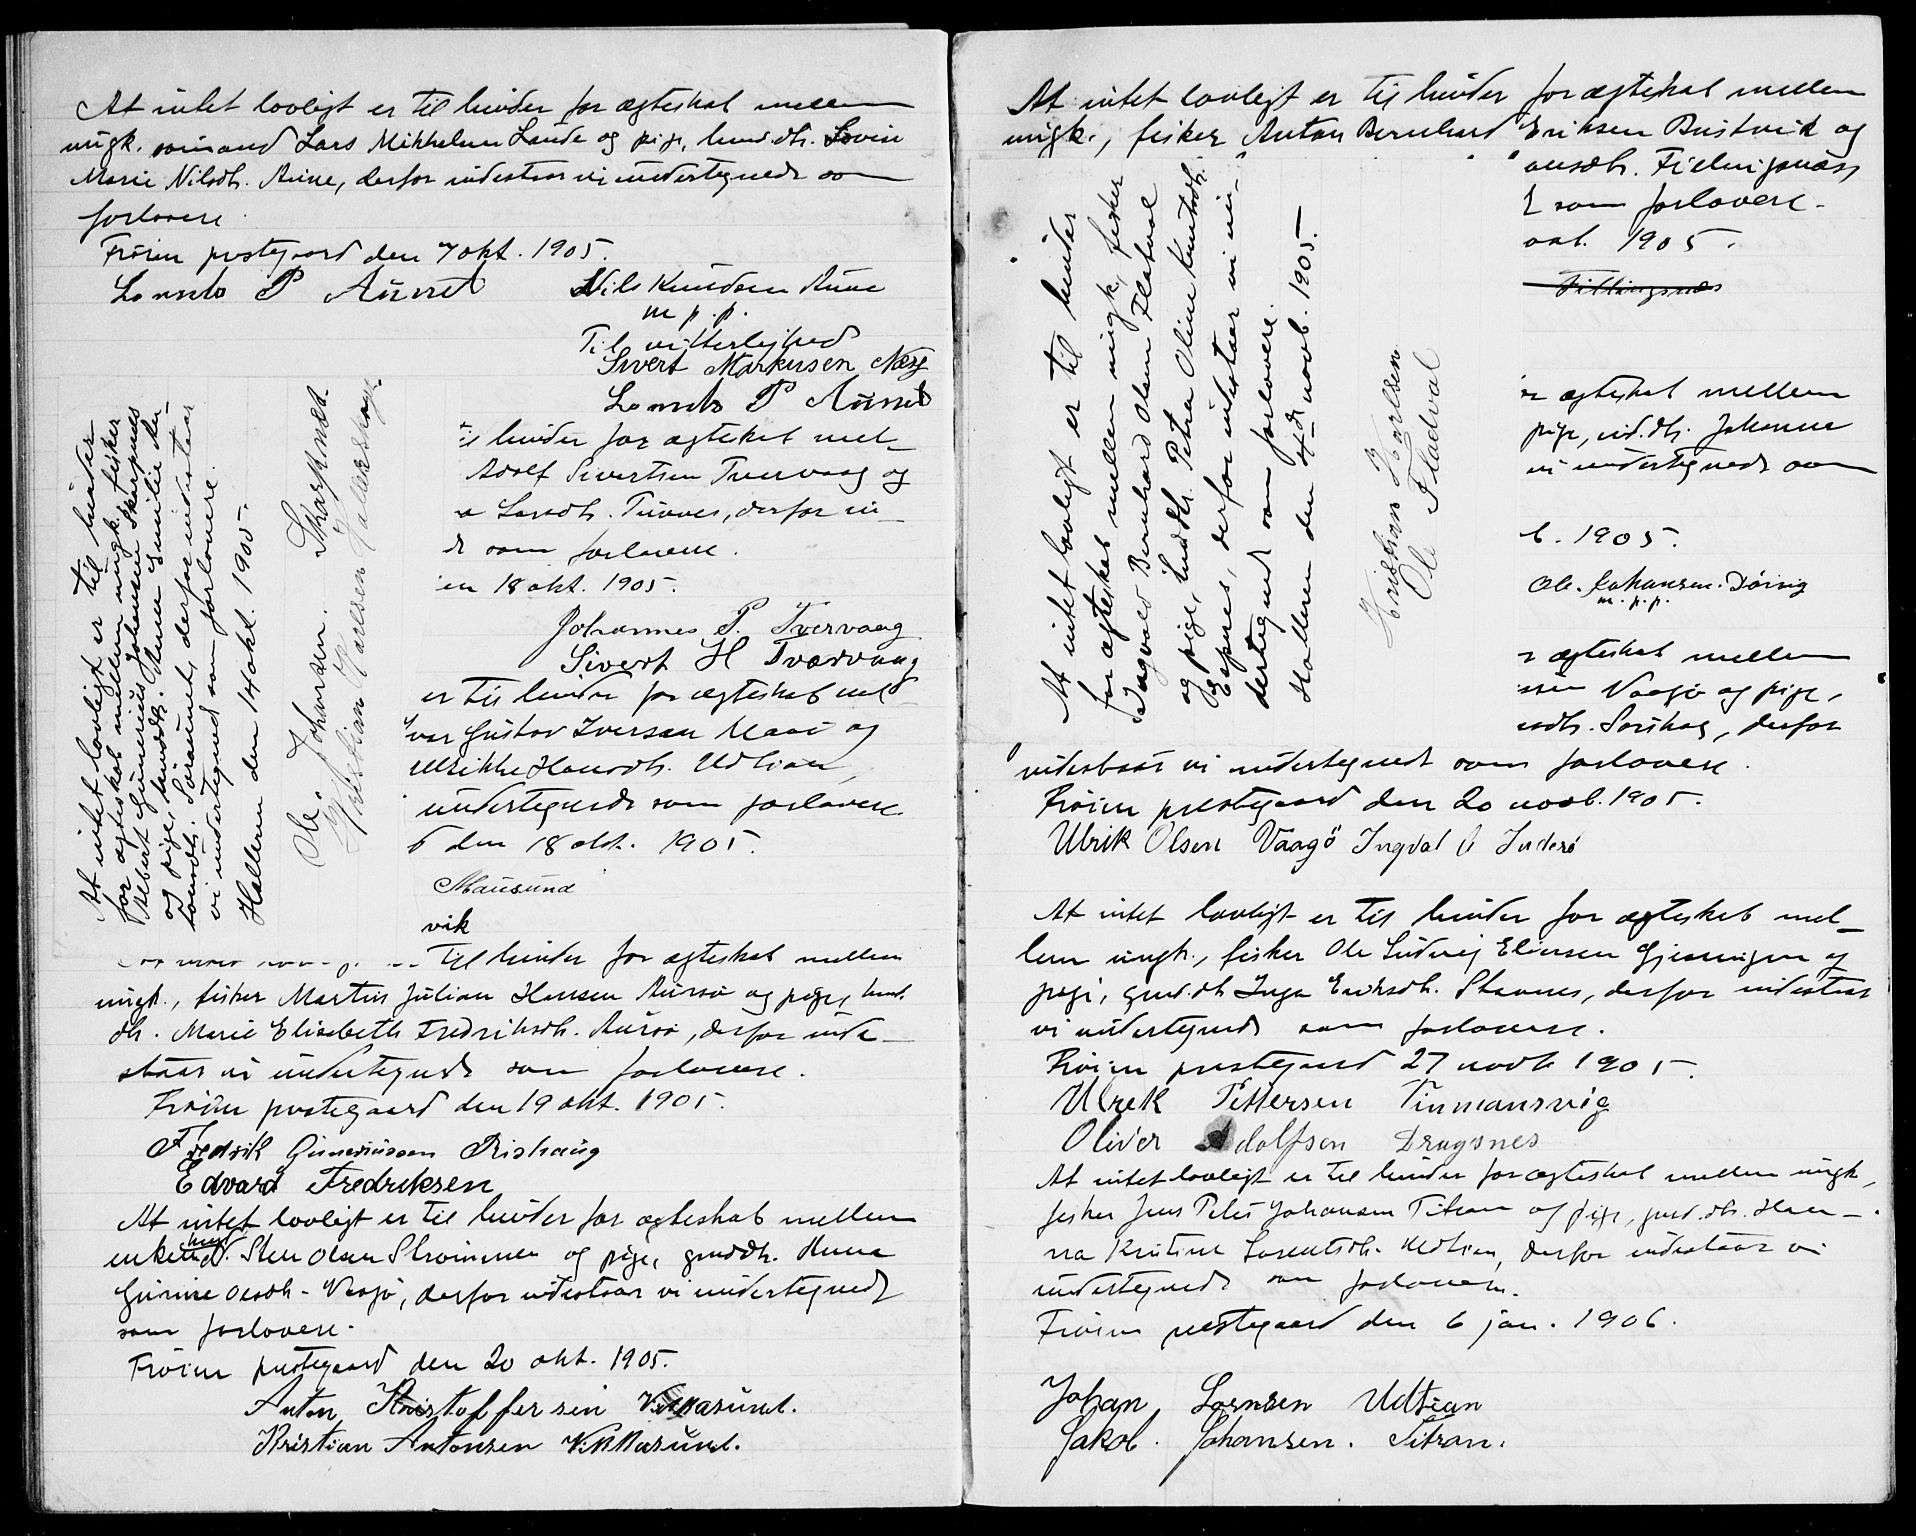 At intet lovligt er til hinder for ægteskab mellem
ungk. sømand Lars Mikkelsen Lande og pige, husd.dtr. Lovise
Marie Nilsdtr. Aune, derfor indestaar vi undertegnede som
forlovere.
Frøien prestegaard den 7 okt. 1905.
P Aunet
Nils Knudsen Aune
m p. p.
Til vitterlighed
Sivert Markusen
P Aunet
At intet lovligt er til hinder
for ægteskab mellem ungk. fisker
Albert Guneriüs Johansen Skarpnes
og pige, husdtr. Anne Emilie An-
tonsdtr. Søraunet, derfor indestaar
vi undertegned som forlovere.
Halleren den 14 okt. 1905
Ole. Johansen. Skarpnset.
hinder for ægteskab mel-
Adolf Sivertsen Tvervaag og
Larsdtr. Tuvnes, derfor in-
som forlovere.
18 okt. 1905.
Johannes P. Tvervaag
Sivert H Tværvaag
er til hinder for ægteskab mel-
Gustav Iversen Maai og
Ulrikke Hansdtr. Udtian,
undertegnede som forlovere
den 18 okt. 1905.
Mausund
vik
til hinder for ægteskab mellem
ungk., fisker Martin Julian Hansen Aursø og pige, husd.
dtr. Marie Elisabeth Fredriksdtr. Aursø, derfor inde-
staar vi undertegnede som forlovere.
Frøien prestegaard den 19 okt. 1905.
Fredrik Guneriussen Rishaug
Edvard Fredriksen
At intet lovligt er til hinder for ægteskab mellem
Sten Olsen Strømmen og pige, gmd.dtr. Anna
Gurine Olsdtr. Vaagø, derfor indestaar vi undertegnede
som forlovere.
Frøien prestegaard den 20 okt. 1905.
Anton Kristoffersen Vikkasund.
Kristian Antonsen Vikkasund.
At intet lovligt er til hinder for ægteskab mellem
ungk., fisker Anton Bernhard Eriksen Bustvik og
som forlovere.
1905.
Fillingsnæs
At intet lovligt er til hinder
for ægteskab mellem ungk. fisker
Ingvald Bernhard Olsen Fladval
og pige, husdtr. Petra Oline Knutsdtr.
Espnes, derfor indestaar vi un-
dertegned som forlovere.
Halleren den 4de novb. 1905.
Kristian Karlsen
Ole Fladval
ægteskab mellem
pige, ind.dtr. Johanna
vi undertegnede som
b. 1905.
Ole. Johansen. Dørvig
m. p. p.
ægteskab mellem
Vaagø og pige,
Sørskag, derfor
indestaar vi undertegned som forlovere.
Frøien prestegaard den 20 novb. 1905.
Ulrik Olsen Vaagö Ingval O Inderø
At intet lovligt er til hinder for ægteskab mel-
lem ungk., fisker Ole Ludvig Eliasen Gjessingen og
pige, gmd.dtr. Inga Eriksdtr. Stavnes, derfor indestaar
vi undertegnede som forlovere.
Frøien prestegaard 27 novb 1905.
Ulrek Pettersen Tinmansvig
Oliver Adolfson Dragsnes
At intet lovligt er til hinder for ægteskab mellem ungk,
fisker Jens Peter Johansen Titran og pige, gmd.dtr. Han-
na Kristine Lorentsdtr. Udtian, derfor indestaar vi
undertegnede som forlovere.
Frøien prestegaard den 6 jan. 1906.
Johan Lornsen Udtian
Jakob. Johansen. Titran.